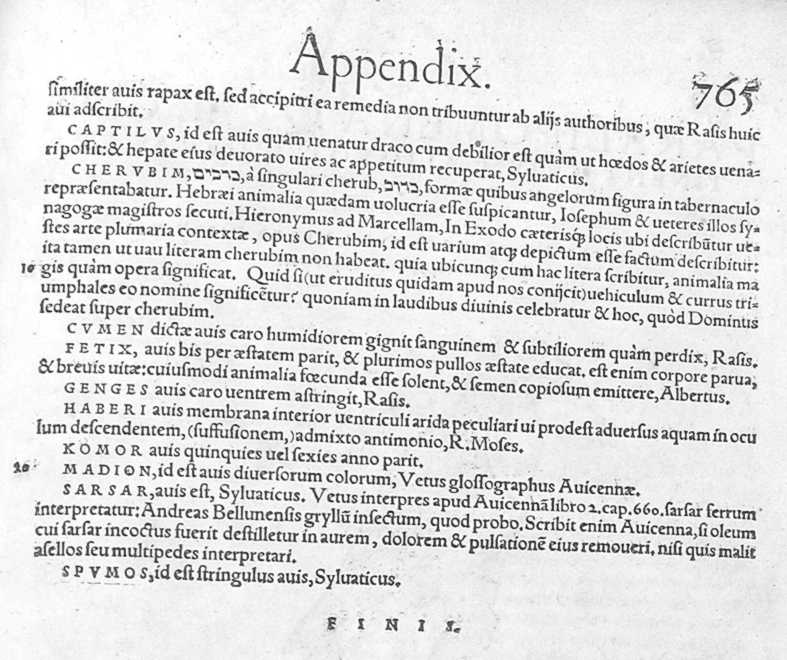 Appendix. 765
ſimiliter auis rapax eſt. ſed accipitri ea remedia non tribuuntur ab alijs authoribus, quæ Raſis huic
aui adſcribit.
CAPTILVS, id eſt auis quam uenatur draco cum debilior eſt quàm ut hœdos & arietes uena⸗
ri poſsit: & hepate eius deuorato uires ac appetitum recuperat, Syluaticus.
CHERVBIM, כרבים, à ſingulari cherub, כרוב, formæ quibus angelorum figura in tabernaculo
repræſentabatur. Hebræi animalia quædam uolucria eſſe ſuſpicantur, Ioſephum & ueteres illos ſy⸗
nagogæ magiſtros ſecuti. Hieronymus ad Marcellam, In Exodo cæterisq́; locis ubi deſcribūtur ue⸗
ſtes arte plumaria contextæ, opus Cherubim, id eſt uarium atq; depictum eſſe factum deſcribitur:
ita tamen ut uau literam cherubim non habeat. quia ubicunq; cum hac litera ſcribitur, animalia ma
10 gis quàm opera ſignificat. Quid ſi (ut eruditus quidam apud nos conijcit) uehiculum & currus tri⸗
umphales eo nomine ſignificētur? quoniam in laudibus diuinis celebratur & hoc, quòd Dominus
ſedeat ſuper cherubim.
CVMEN dictæ auis caro humidiorem gignit ſanguinem & ſubtiliorem quàm perdix, Raſis.
FETIX, auis bis per æſtatem parit, & plurimos pullos æſtate educat. eſt enim corpore parua,
& breuis uitæ: cuiuſmodi animalia fœcunda eſſe ſolent, & ſemen copioſum emittere, Albertus.
GENGES auis caro uentrem aſtringit, Raſis.
HABERI auis membrana interior uentriculi arida peculiari ui prodeſt aduerſus aquam in ocu
lum deſcendentem, (ſuffuſionem,) admixto antimonio, R. Moſes.
KOMOR auis quinquies uel ſexies anno parit.
20 MADION, id eſt auis diuerſorum colorum, Vetus gloſſographus Auicennæ.
SARSAR, auis eſt, Syluaticus. Vetus interpres apud Auicennā libro 2. cap. 660. ſarſar ferrum
interpretatur: Andreas Bellunenſis gryllū inſectum, quod probo. Scribit enim Auicenna, ſi oleum
cui ſarſar incoctus fuerit deſtilletur in aurem, dolorem & pulſationē eius remoueri. niſi quis malit
aſellos ſeu multipedes interpretari.
SPVMOS, id eſt ſtringulus auis, Syluaticus.
FINIS.